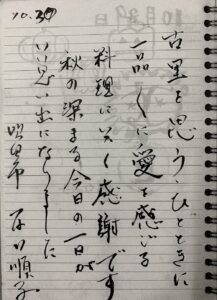 10.30
古里を思うひとときに
一品一品に愛を感じる
料理に、く感謝です
秋の深まる今日の一日が
いい思い出になりました
石川順子